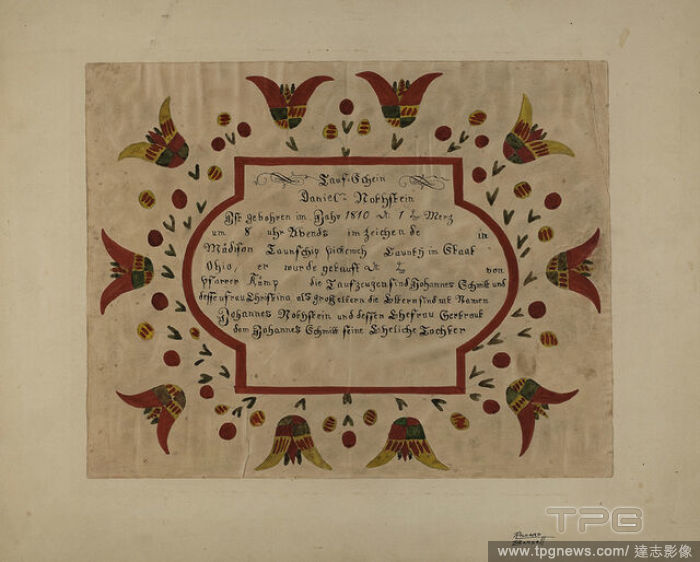 Tauf-Schein
Daniel Nothstein
Ist gebohren im Jahr 1810 d. 1 Merz
um 8 uhr Abends im zeichen de in
Madison Taunschip County im Staat
Ohio, er wurde getauft d. von
pfarrer Kämp die Taufzeuzen sind Johannes Schmit und
dessen frau Christina als großeltern die Eltern sind mit Namen
Johannes Nothstein und dessen Ehefrau Gertraut
dem Johannes Schmitt seine Eheliche Tochter
TPG
www.tpgnews.com/達志影像